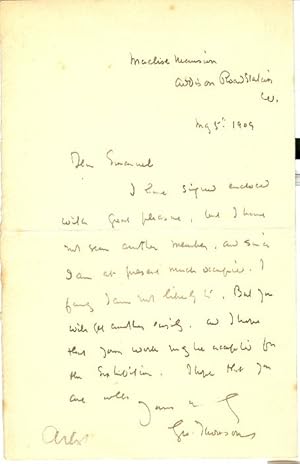 Maclise Mansion
Addison Road Station
W.
May 5th 1909
Dear Emanuel
I have signed enclosed
with great pleasure, but I have
not seen another member, and since
I am at present much occupied, I
fancy I am not likely to. But you
will get another easily, and I hope
that your work may be accepted for
the Exhibition. I hope that you
are well
yours
Geo. Thomson
Artist